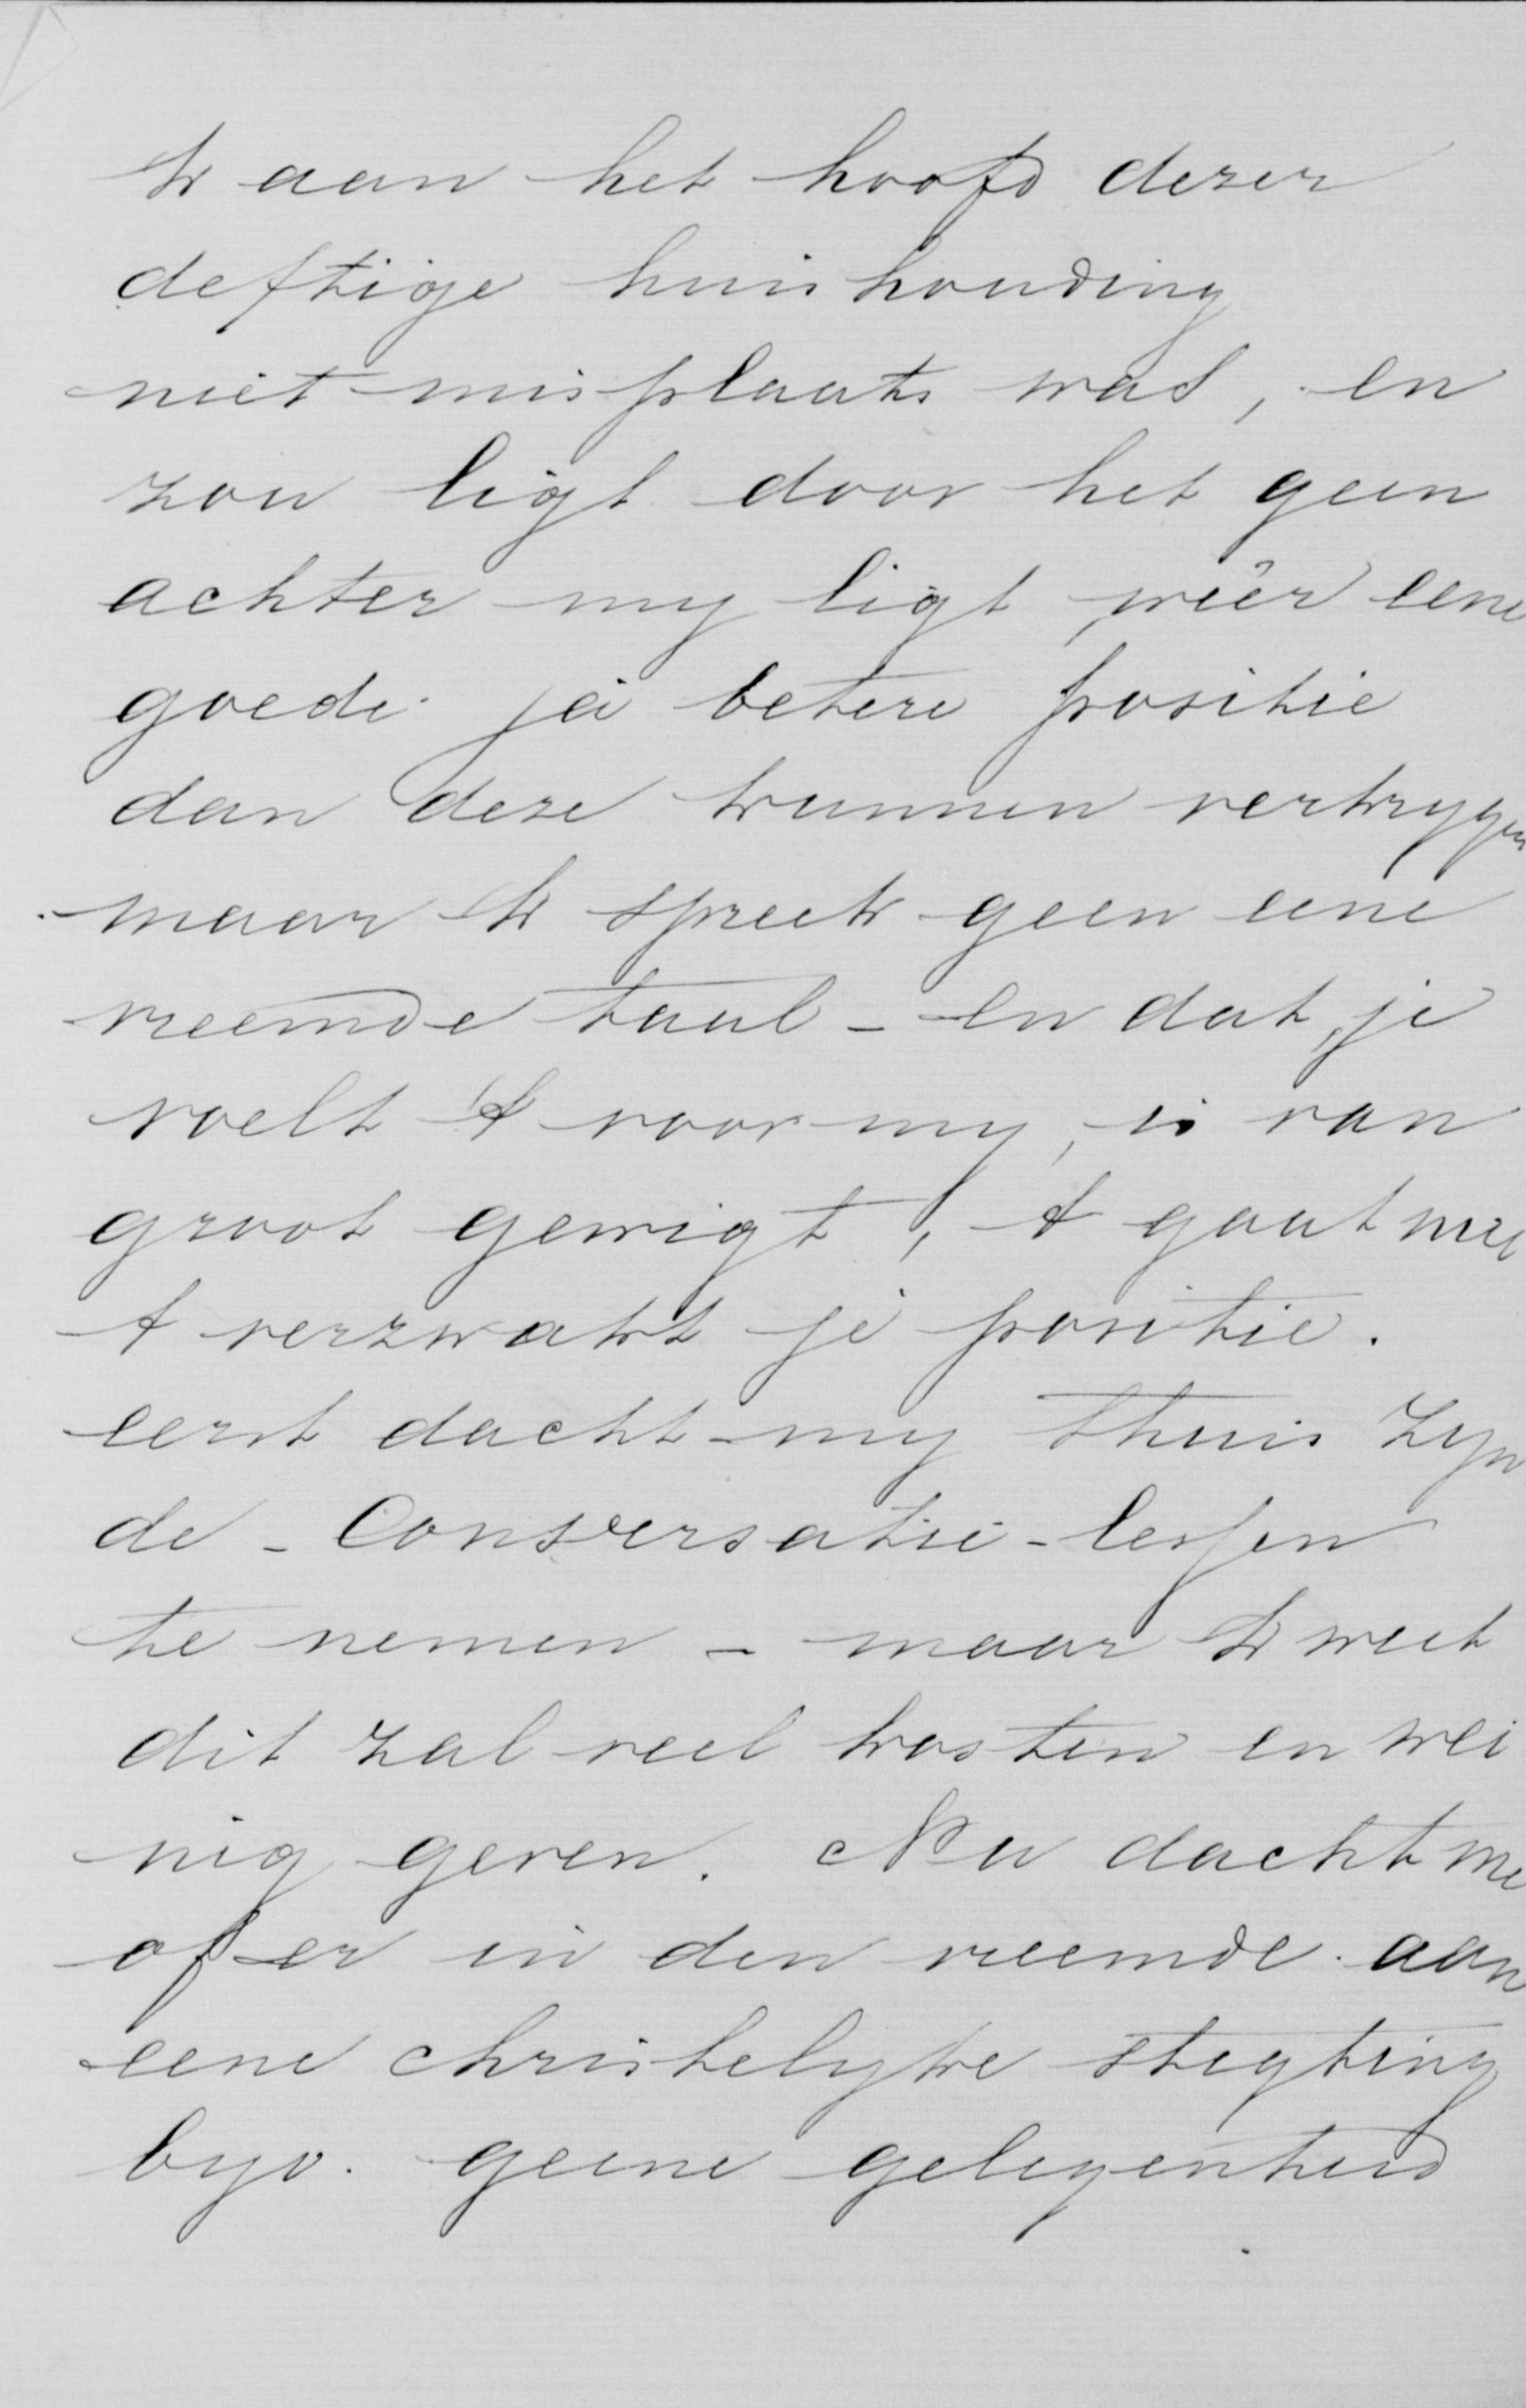 Ik aan het hoofd dezer
deftige huishouding
niet misplaats was, en
zou ligt door het geen
achter my ligt weêr eene
goede ja betere positie
dan deze kunnen verkrygen
maar Ik spreek geen eene
vreemde taal - en dat, je
voelt 't voor my, is van
groot gewigt, 't gaat
't verzwakt je positie.
eerst dacht my thuis zyn
de - Conversatie - lessen
te nemen - maar Ik weet
dit zal veel kosten en wei
nig geven. Nu dacht me
of er in den vreemde aan
eene christelyke stigting
byv. geene gelegenheid